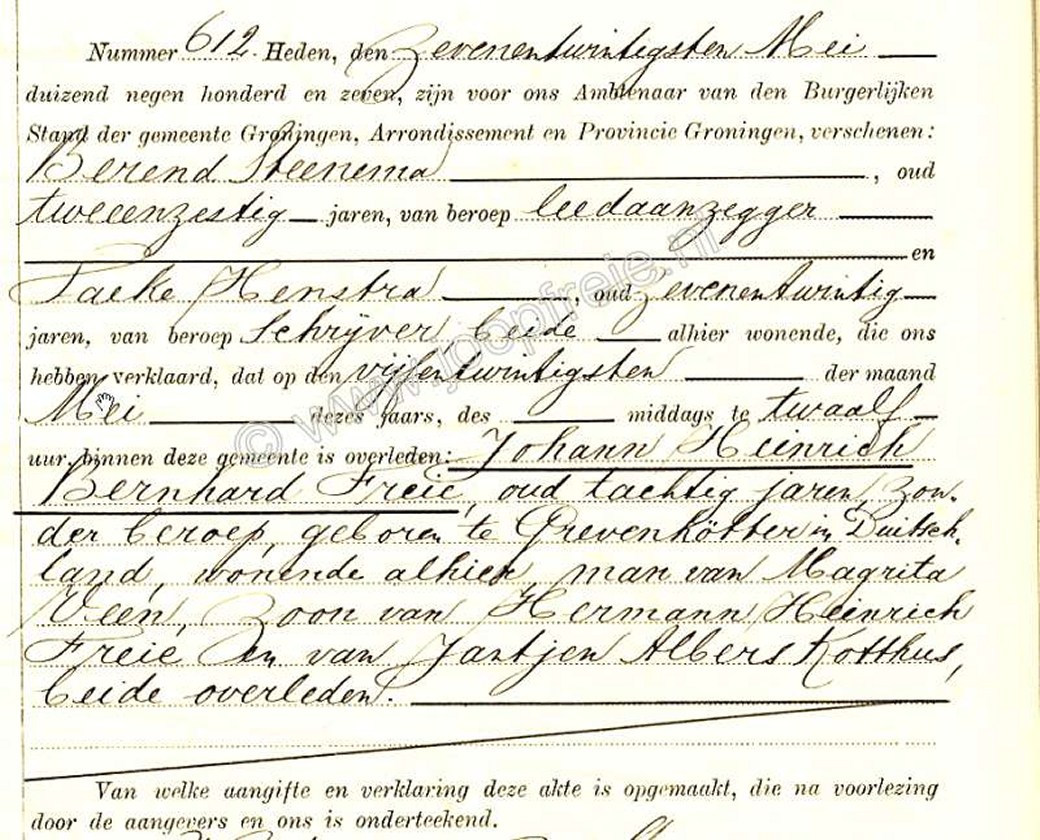 Nummer 612. Heden, den zevenentwintigsten Mei
duizend negen honderd en zeven, zijn voor ons Ambtenaar van den Burgerlijken
Stand der gemeente Groningen, Arrondissement en Provincie Groningen, verschenen:
Berend Steenema, oud
tweeenzestig jaren, van beroep leedaanzegger
en
Taeke Henstra, oud zevenentwintig
jaren, van beroep Schrijver, beide alhier wonende, die ons
hebben verklaard, dat op den vijfentwintigsten der maand
Mei dezes jaars, des middags te twaalf
uur, binnen deze gemeente is overleden: Johann Heinrich
Bernhard Freie, oud tachtig jaren, zon-
der beroep, geboren te Grevenkötter in Duitsch-
land, wonende alhier, man van Magrita
Veen, zoon van Hermann Heinrich
Freie en van Jantjen Albers Kotthus,
beide overleden.
Van welke aangifte en verklaring deze akte is opgemaakt, die na voorlezing
door de aangevers en ons is onderteekend.
© www.joopfreie.nl